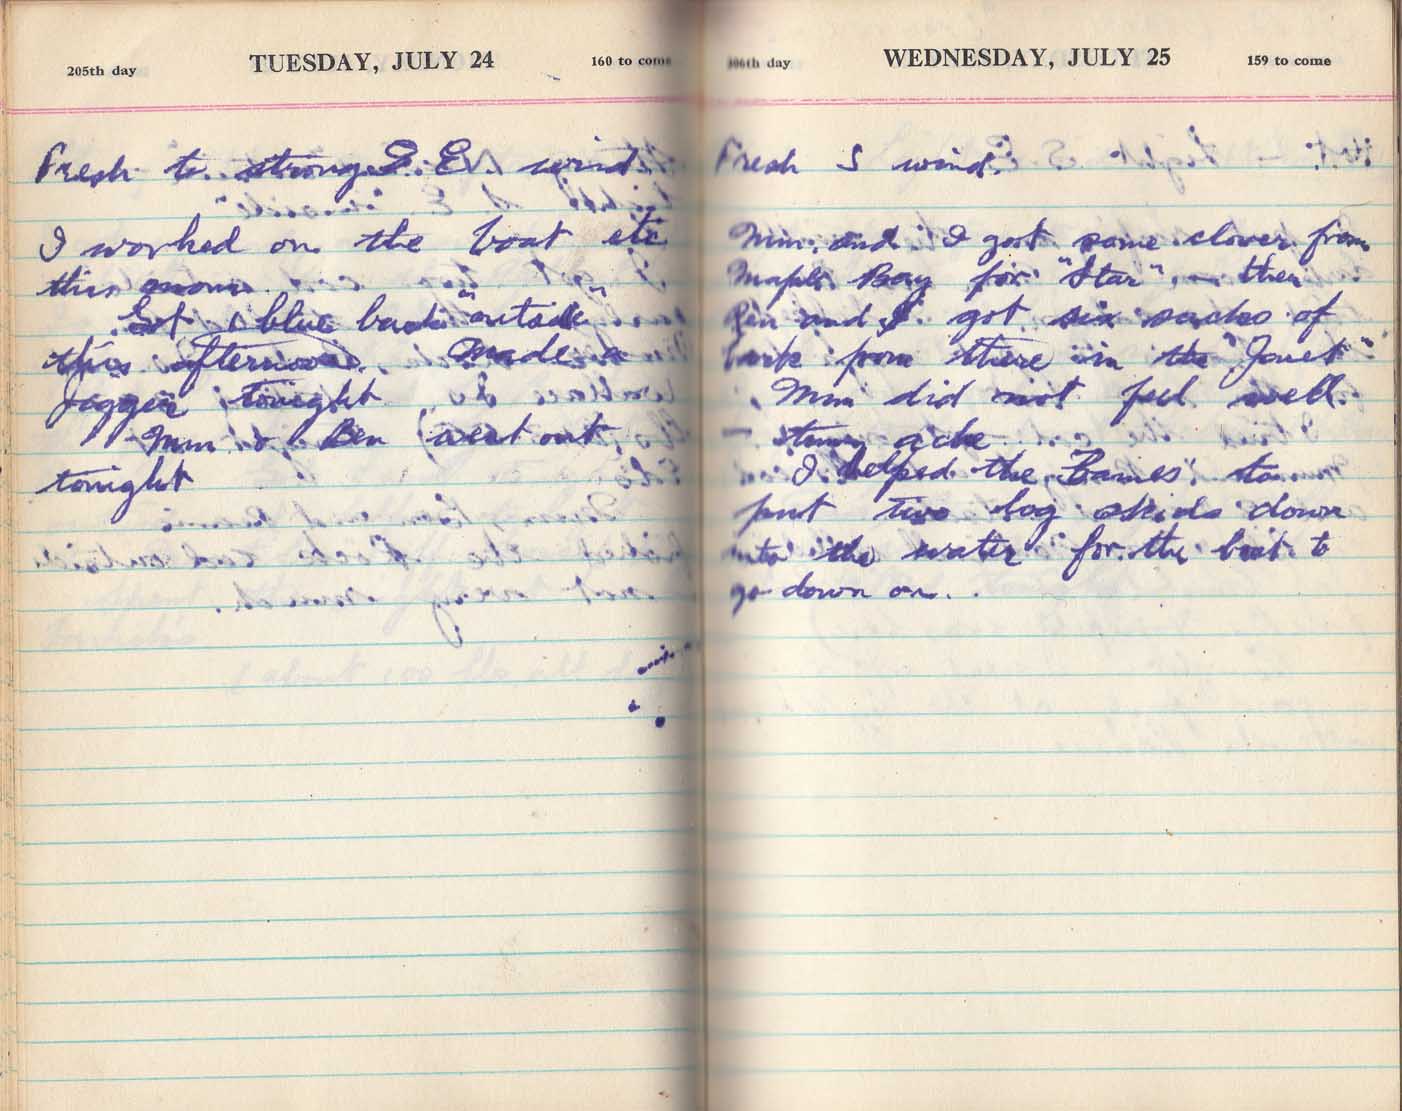 205th day TUESDAY, JULY 24 160 to come
Fresh to strong S. E. wind
I worked on the boat etc
this morn.
Got 1 blue back "outside"
this afternoon. Made a
Jogger tonight
Mum & Ben went out
tonight
206th day WEDNESDAY, JULY 25 159 to come
Fresh S wind.
Mum and I got some clover from
Maple Bay for "Star", — then
Ben and I got six sacks of
bark from there in the "Janet"
Mum did not feel well.
— stumy ache
I helped the "Eames" to
put two log skids down
into the water for the boat to
go down on.